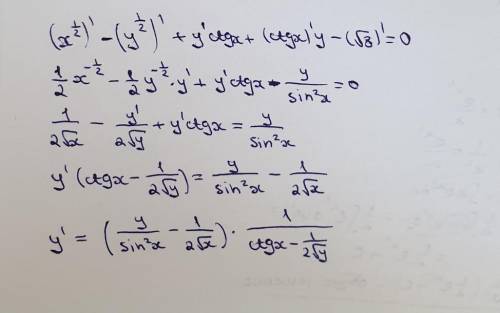 (x^{1/2})' - (y^{1/2})' + y'ctgx + (ctgx)'y - (√3)' = 0
1/2 x^{-1/2} - 1/2 y^{-1/2} · y' + y'ctgx - y/sin²x = 0
1/(2√x) - y'/(2√y) + y'ctgx = y/sin²x
y'(ctgx - 1/(2√y)) = y/sin²x - 1/(2√x)
y' = (y/sin²x - 1/(2√x)) · 1/(ctgx - 1/(2√y))